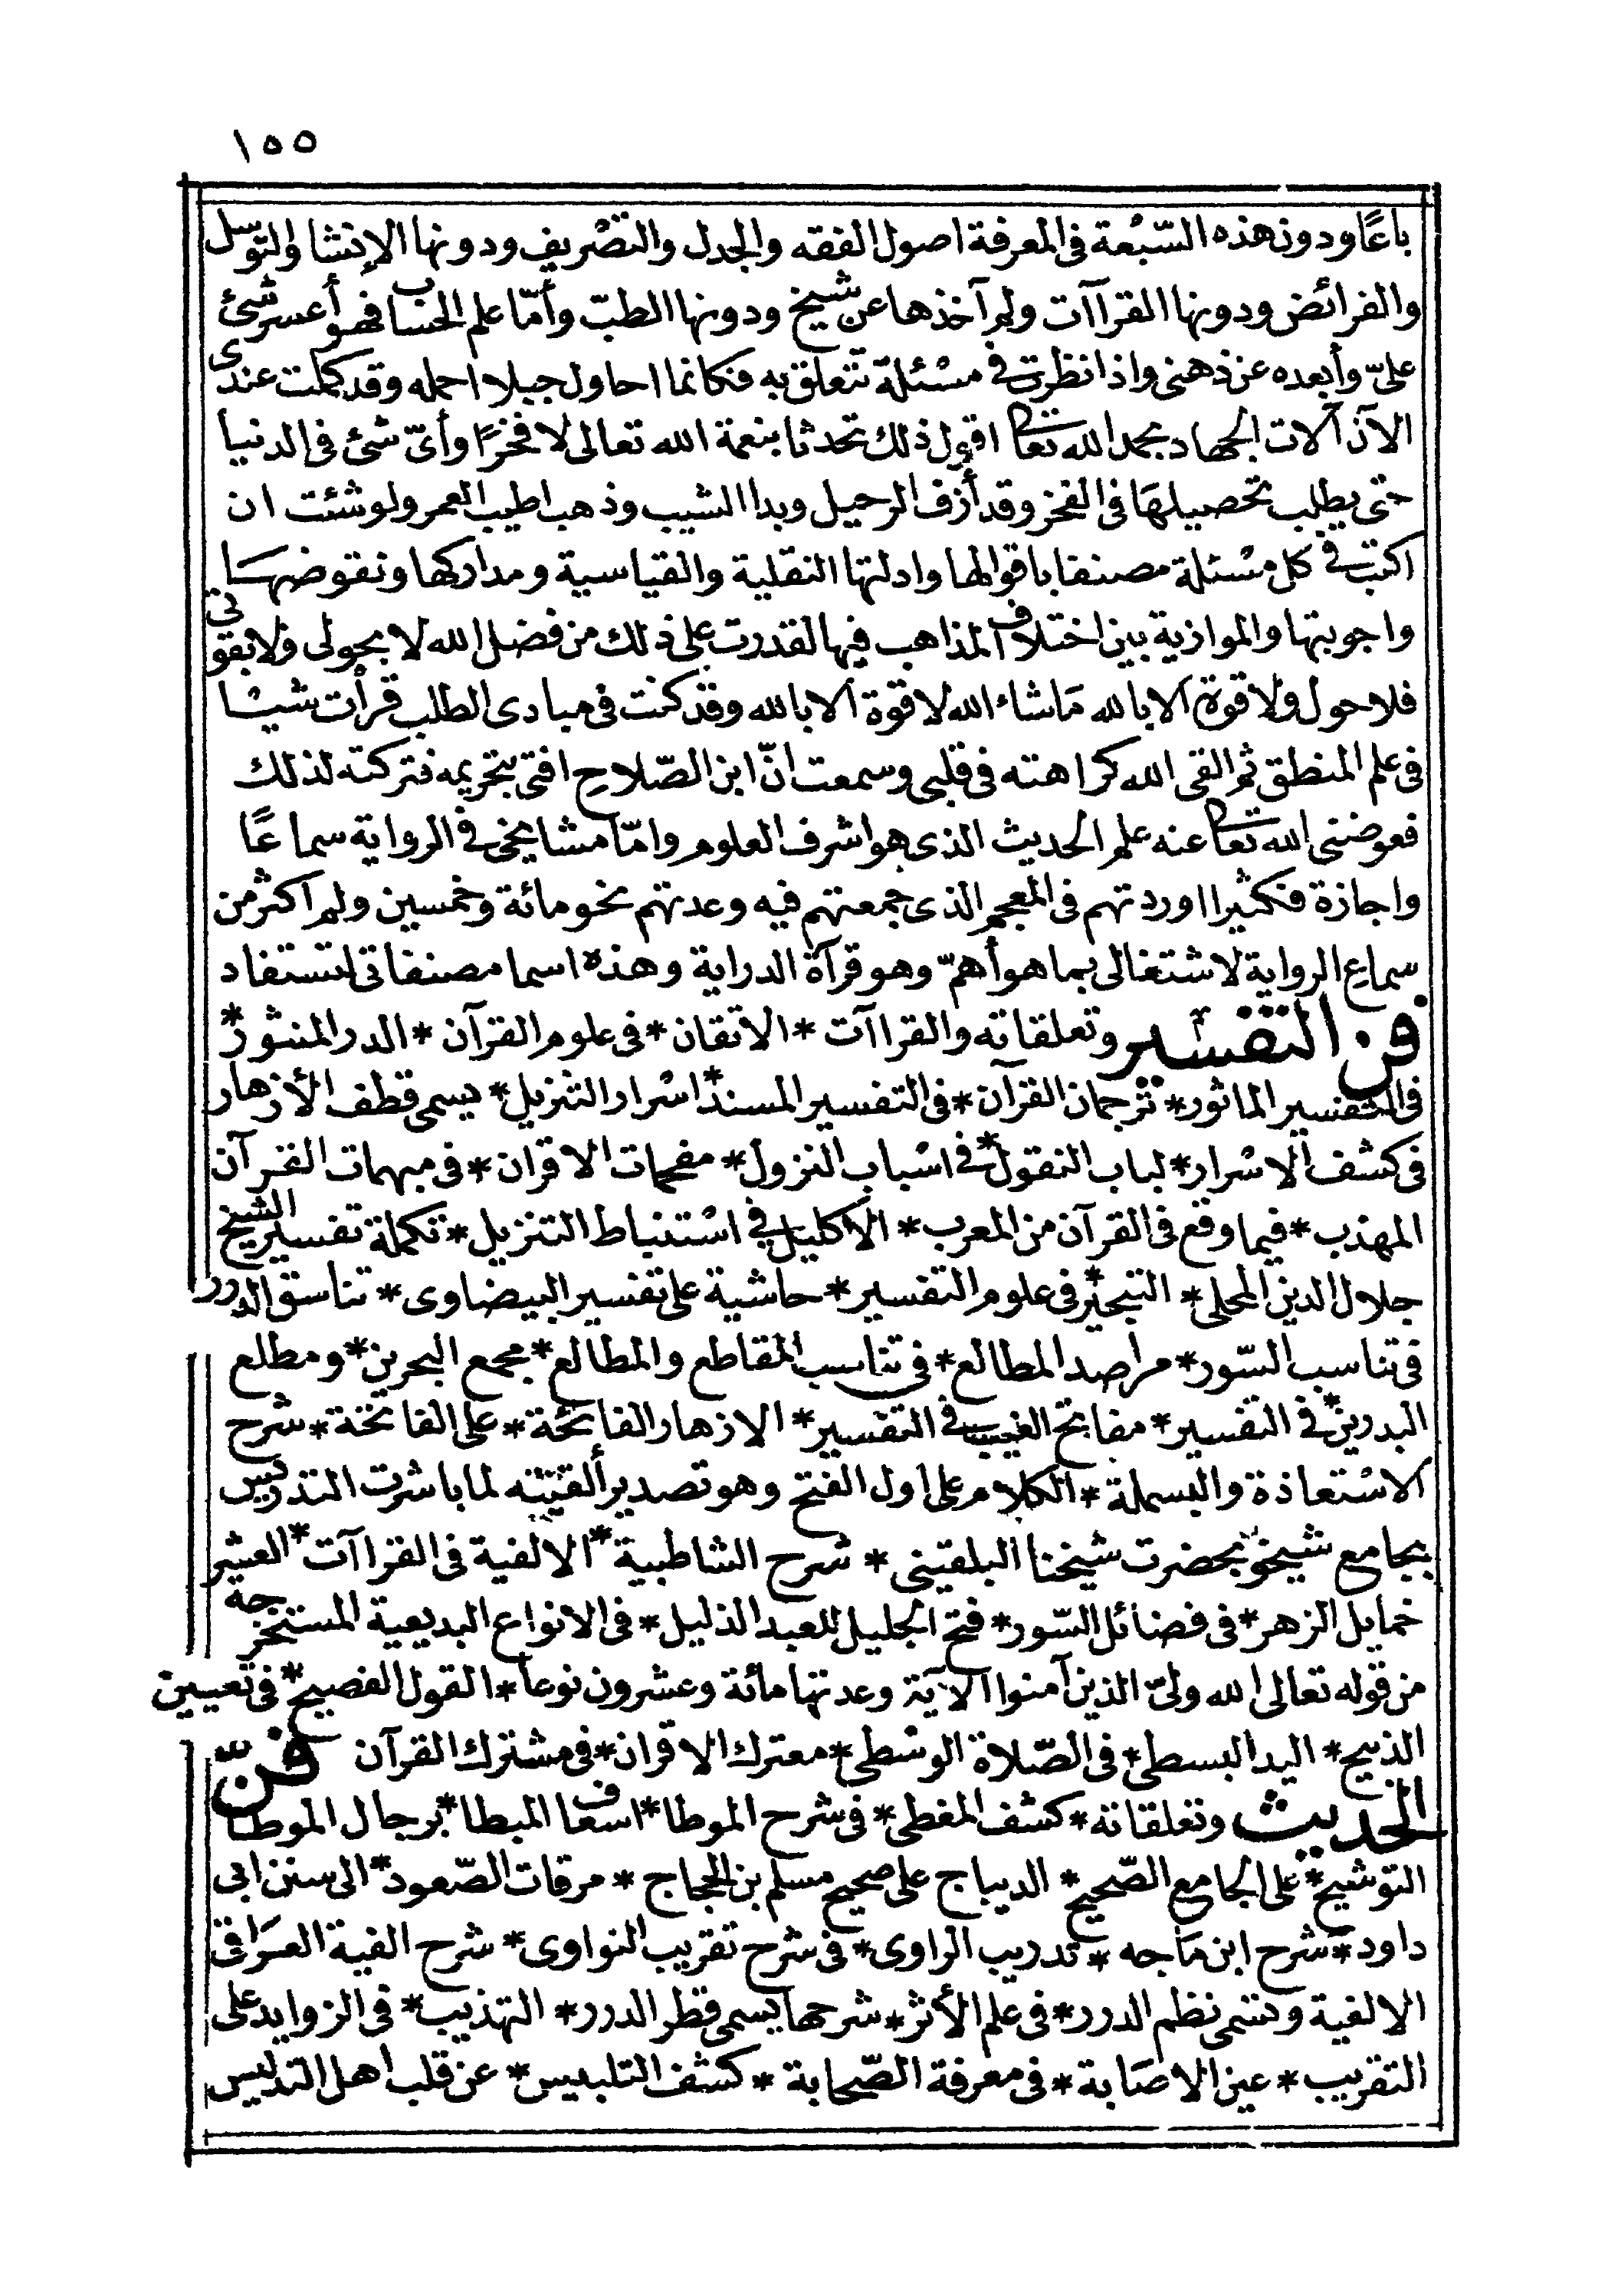 ١٥٥
باعًا ودون هذه السّبْعة فى المعرفة اصول الفقه والجدل والتصْريف ودونها الإنشا والتوسّل
والفرائض ودونها القراآت ولم آخذها عن شيخ ودونها الطبّ وأمّا علم الحساب فهو أعسر شئ
علىّ وأبعده عن ذهنى واذا نظرت فى مسْئلة تتعلق به فكانما احاول جبلا احمله وقد كملت عندى
الآن آلات الجهاد بحمد الله تعالى اقول ذلك تحدثا بنعمة الله تعالى لا فخرًا وأىّ شئ فى الدنيا
حتى يطلب تحصيلهَا فى الفخر وقد أزف الرحيل وبدا الشيب وذهب اطيب العمر ولو شئت ان
اكتب فى كل مسْئلة مصنفا باقوالها وادلتها النقلية والقياسية ومداركها ونقوضهَا
واجوبتها والموازية بين اختلاف المذاهب فيها لقدرت على ذلك من فضل الله لا بحولى ولا بقوتى
فلا حول ولا قوة الا بالله مَا شاء الله لا قوة الا بالله وقد كنت فى مبادى الطلب قرأت شيئا
فى علم المنطق ثم القى الله كراهته فى قلبى وسمعت انّ ابن الصّلاح افتى بتحريمه فتركته لذلك
فعوضنى الله تعالى عنه علم الحديث الذى هو اشرف العلوم وامّا مشايخى فى الرواية سماعًا
واجازة فكثيرا اوردتهم فى المعجم الذى جمعتهم فيه وعدتهم نحو مائة وخمسين ولم اكثر من
سماع الرواية لاشتغالى بما هو أهمّ وهو قرآة الدراية وهذه اسما مصنفاتى لتستفاد
فن التفسير وتعلقاته والقراآت * الاتقان * فى علوم القرآن * الدر المنثور *
فى التفسير الماثور * ترجمان القرآن * فى التفسير المسند * اسْرار التنزيل * يسمى قطف الأزهار
فى كشف الاسْرار * لباب النقول * فى اسْباب النزول * مفحمات الاقران * فى مبهمات القرآن
المهذب * فيما وقع فى القرآن من المعرب * الاكليل فى اسْتنباط التنزيل * تكملة تفسير الشيخ
جلال الدين المحلى * التبحير * فى علوم التفسير * حاشية على تفسير البيضاوى * تناسق الدرر
فى تناسب السّور * مراصد المطالع * فى تناسب المقاطع والمطالع * مجمع البحرين * ومطلع
البدرين * فى التفسير * مفاتح الغيب فى التفسير * الازهار الفائحة * على الفاتحة * شرح
الاسْتعاذة والبسملة * الكلام على اول الفتح وهو تصدير ألقيته لما باشرت التدريس
بجامع شيخو بحضرت شيخنا البلقينى * شرح الشاطبية * الالفية فى القراآت * العشر
خمايل الزهر * فى فضائل السّور * فتح الجليل للعبد الذليل * فى الانواع البديعية المستخرجه
من قوله تعالى الله ولىّ الذين آمنوا الآية وعدتها مائة وعشرون نوعا * القول الفصيح * فى تعيين
الذبيح * اليد البسطى * فى الصّلاة الوسْطى * معترك الاقران * فى مشترك القرآن فنّ
الحديث وتعلقاته * كشف المغطى * فى شرح الموطا * اسعاف المبطا * برجال الموطا
التوشيح * على الجامع الصّحيح * الديباج على صحيح مسلم بن الحجاج * مرقات الصّعود * الى سنن ابى
داود * شرح ابن مَاجه * تدريب الراوى * فى شرح تقريب النواوى * شرح الفية العرَاقى
الالفية وتسمى نظم الدرر * فى علم الأثر * شرحها يسمى قطر الدرر * التهذيب * فى الزوايد على
التقريب * عين الاصَابة * فى معرفة الصّحابة * كشف التلبيس * عن قلب اهل التدليس